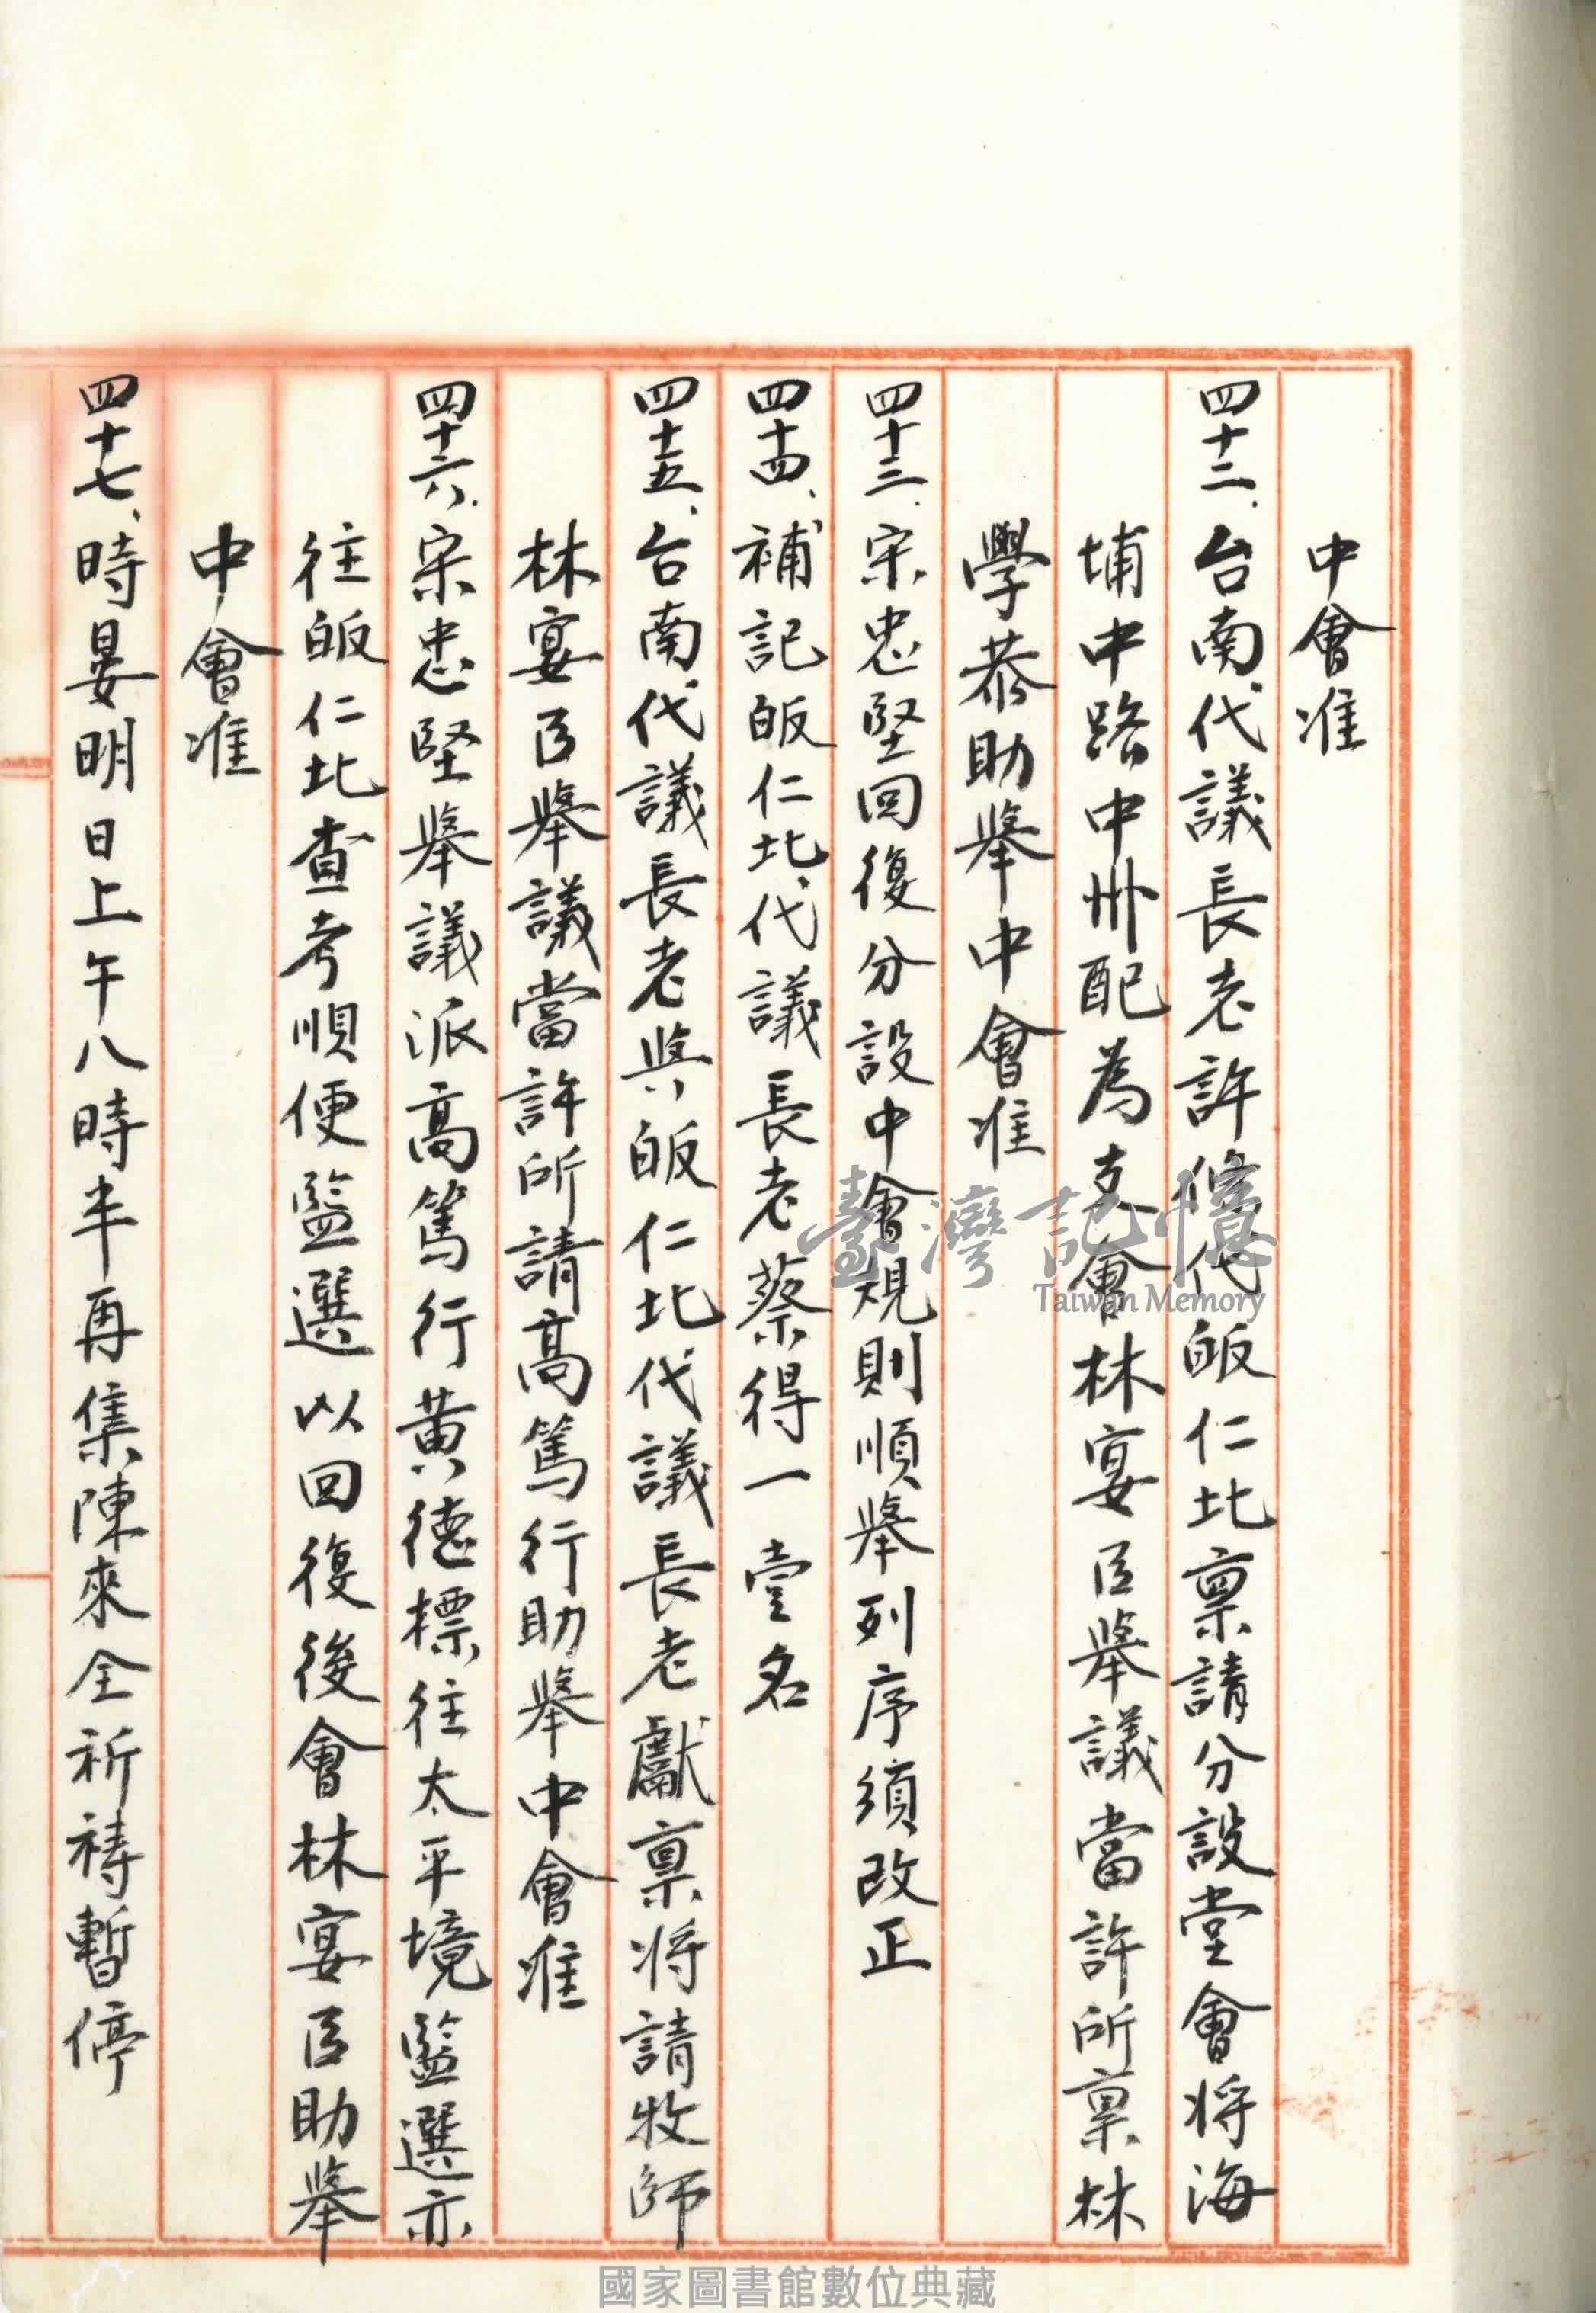 中會准
四十二、台南代議長老許脩代皈仁北禀請分設堂會将海
埔中路中卅配為支會林宴臣舉議當許所禀林
學恭助舉中會准
四十三、宋忠堅回復分設中會規則順舉列序須改正
四十四、補記皈仁北代議長老蔡得一壹名
四十五、台南代議長老與皈仁北代議長老獻禀将請牧師
林宴臣舉議當許所請高篤行助舉中會准
四十六、宋忠堅舉議派高篤行黄德標往太平境監選亦
往皈仁北查考順便監選以回復後會林宴臣助舉
中會准
四十七、時晏明日上午八時半再集陳來全祈禱暫停
臺灣記憶
Taiwan Memory
國家圖書館數位典藏